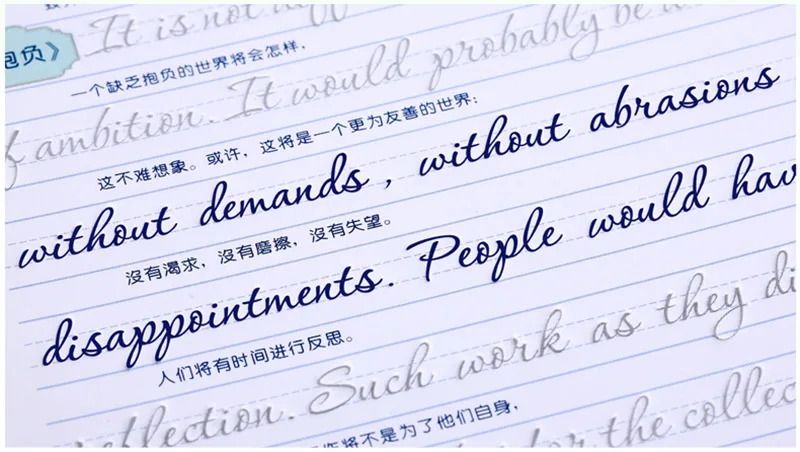 抱负》
It is not
一个缺乏抱负的世界将会怎样,
ambition. It would probably be
这不难想象。或许，这将是一个更为友善的世界：
without demands , without abrasions
沒有渴求，沒有磨擦，沒有失望。
disappointments. People would hav
人们将有时间进行反思。
flection. Such work as they di
作将不是为了他们自身，
for the collec